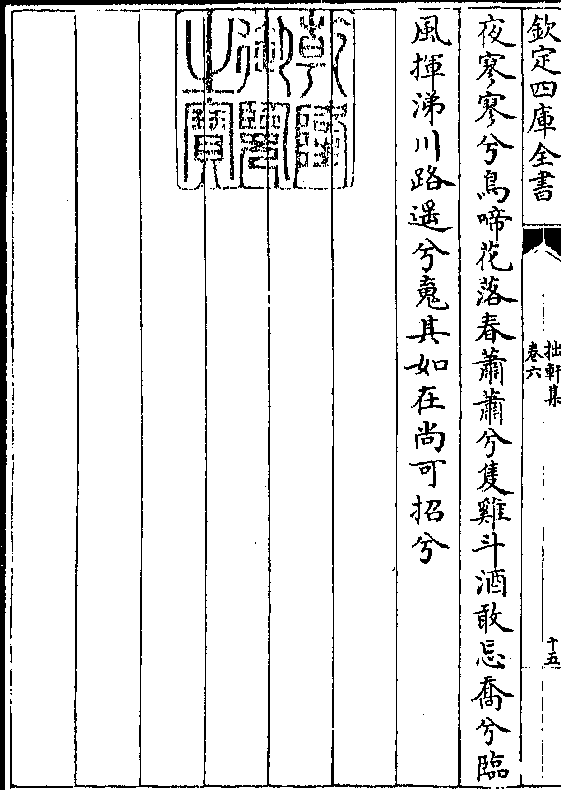 欽定四庫全書
拙軒集
卷六
十五
夜寥寥兮鳥啼花落春蕭蕭兮隻雞斗酒敢忘喬兮臨
風揮涕川路遥兮䰟其如在尚可招兮
乾隆御覽之寶